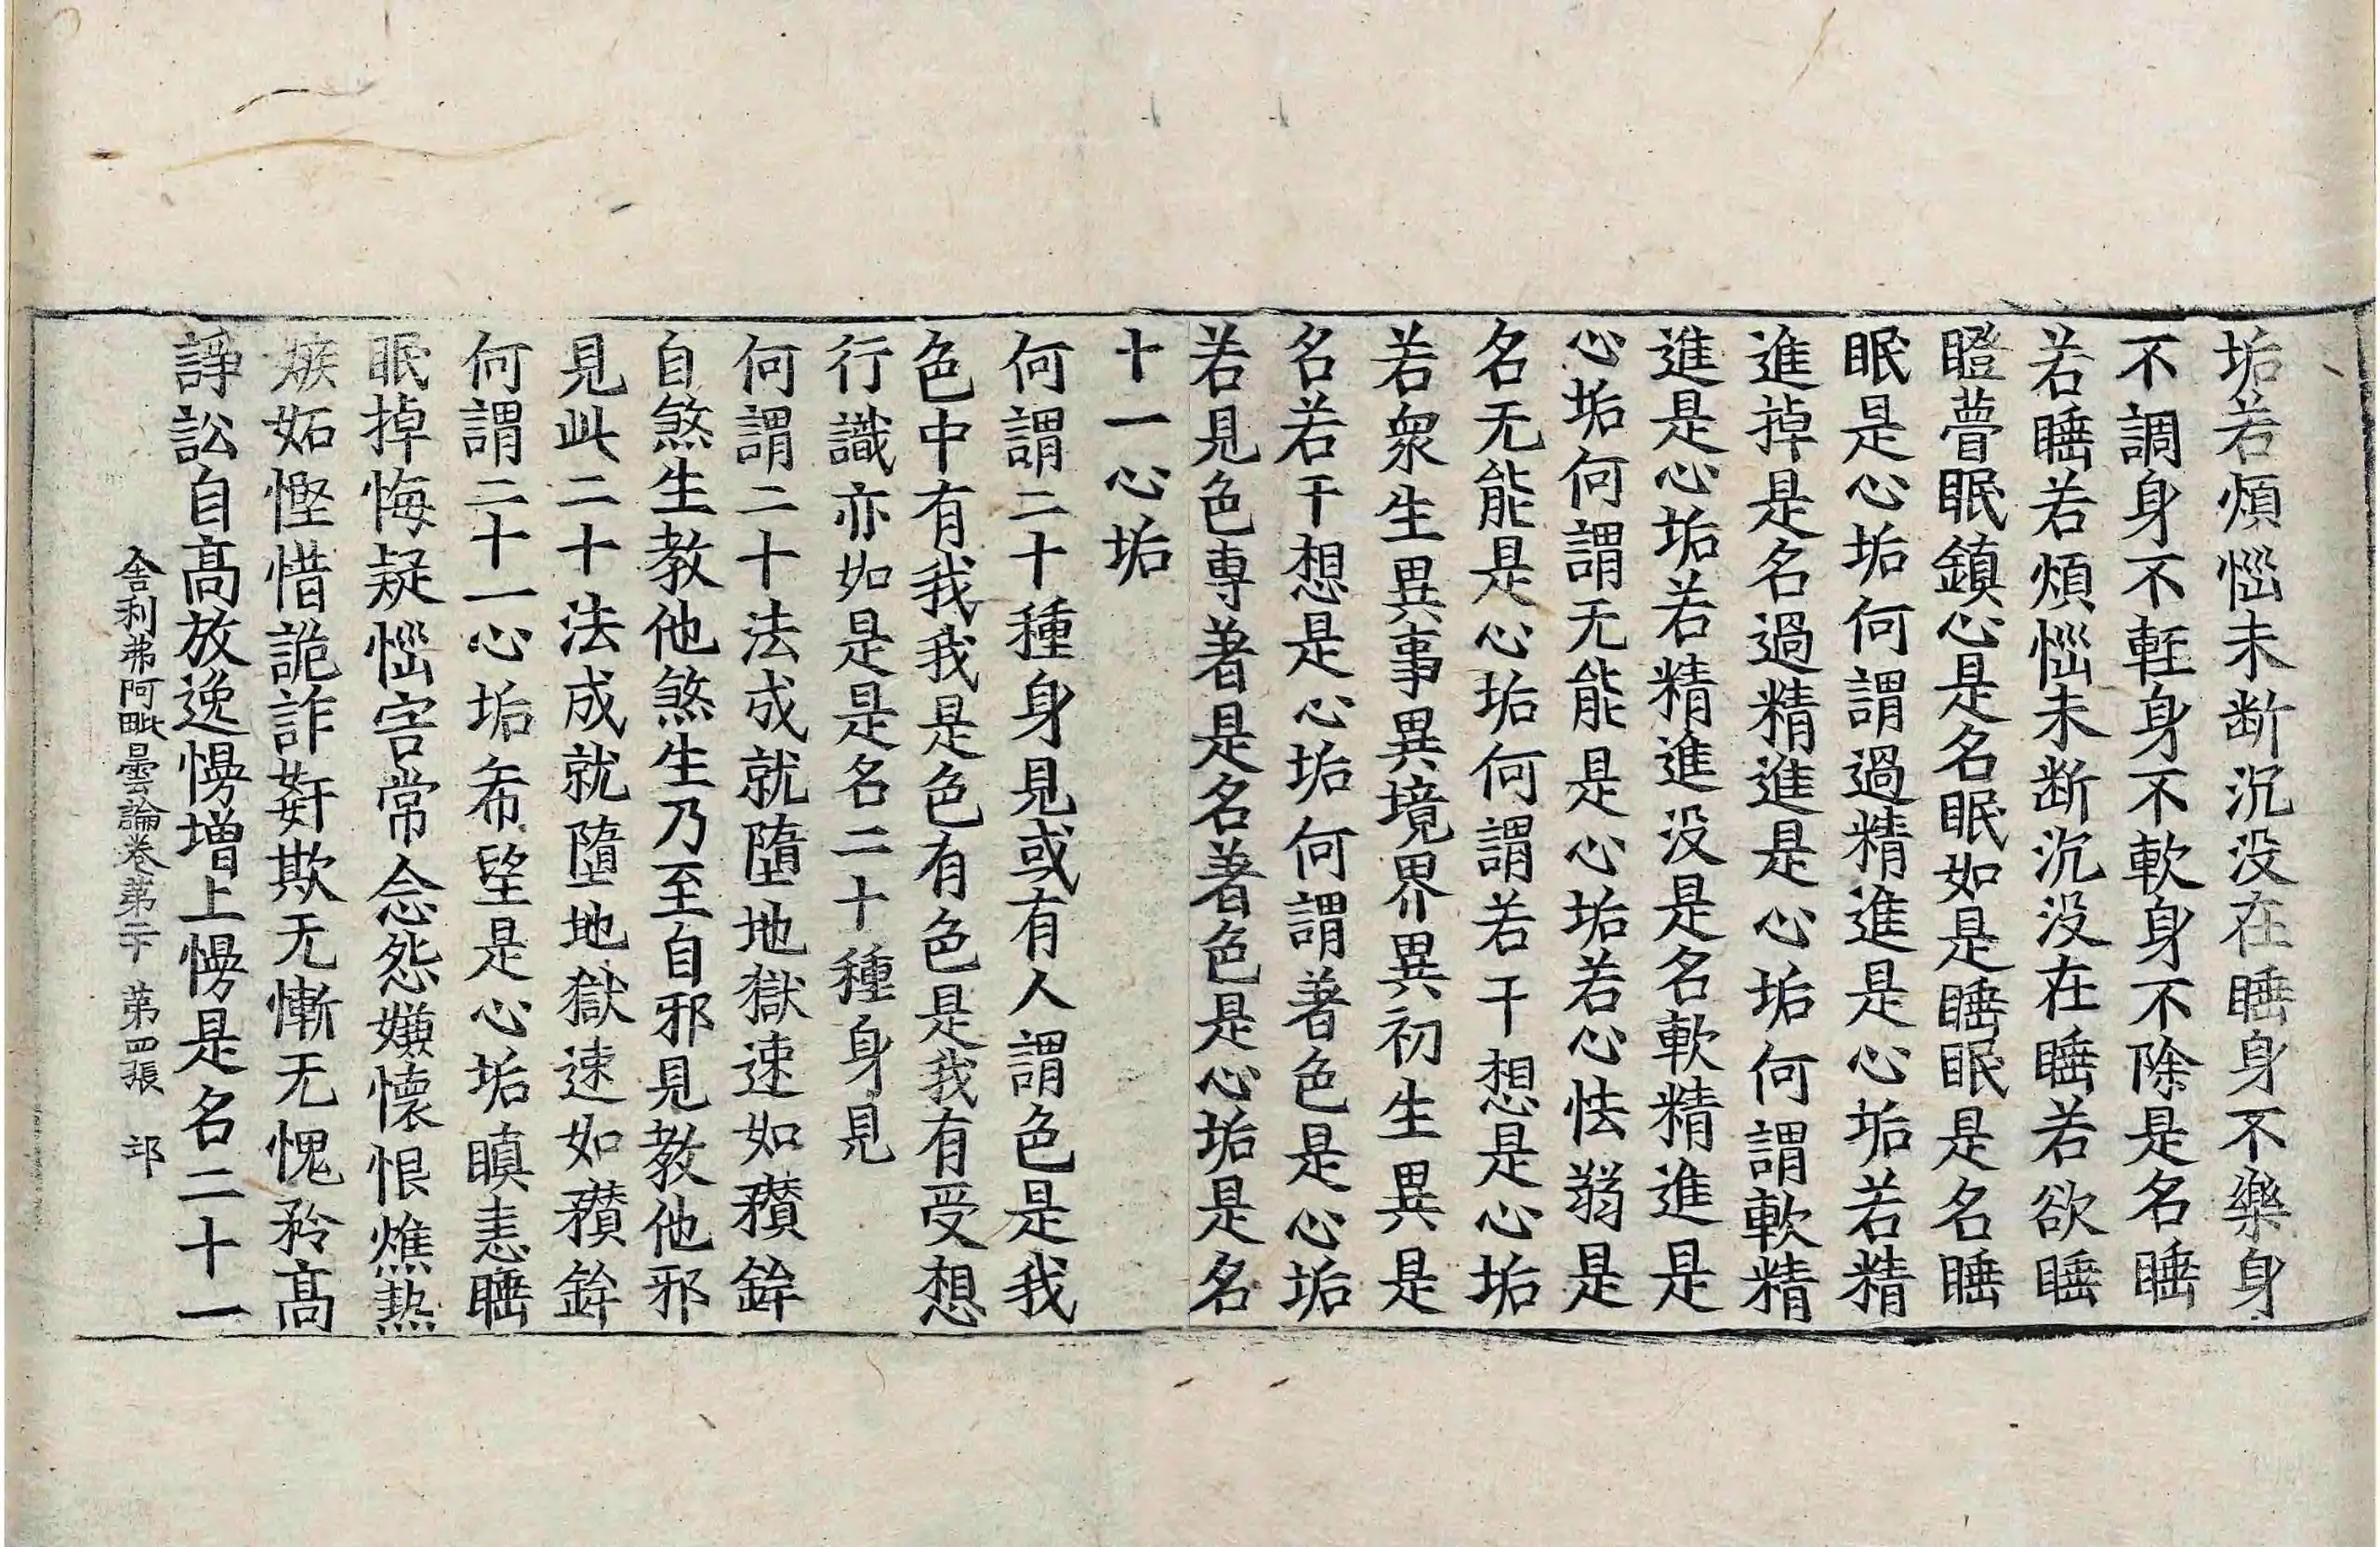 垢若煩惱未断沉没在睡身不樂身
不調身不軽身不軟身不除是名睡
若睡若煩惱未断沉没在睡若欲睡
瞪瞢眠鎮心是名眠如是睡眠是名睡
眠是心垢何謂過精進是心垢若精
進掉是名過精進是心垢何謂軟精
進是心垢若精進没是名軟精進是
心垢何謂无能是心垢若心怯弱是
名无能是心垢何謂若干想是心垢
若衆生異事異境界異初生異是
名若干想是心垢何謂著色是心垢
若見色專著是名著色是心垢是名
十一心垢
何謂二十種身見或有人謂色是我
色中有我我是色有色是我有受想
行識亦如是是名二十種身見
何謂二十法成就墮地獄速如䂎鉾
自煞生教他煞生乃至自邪見教他邪
見此二十法成就墮地獄速如䂎鉾
何謂二十一心垢希望是心垢瞋恚睡
眠掉悔疑惱害常念怨嫌懷恨燋熱
嫉妬慳惜詭詐姧欺无慚无愧矜髙
諍訟自髙放逸慢增上慢是名二十一
舍利弗阿毗曇論卷第二十 第四張 邙